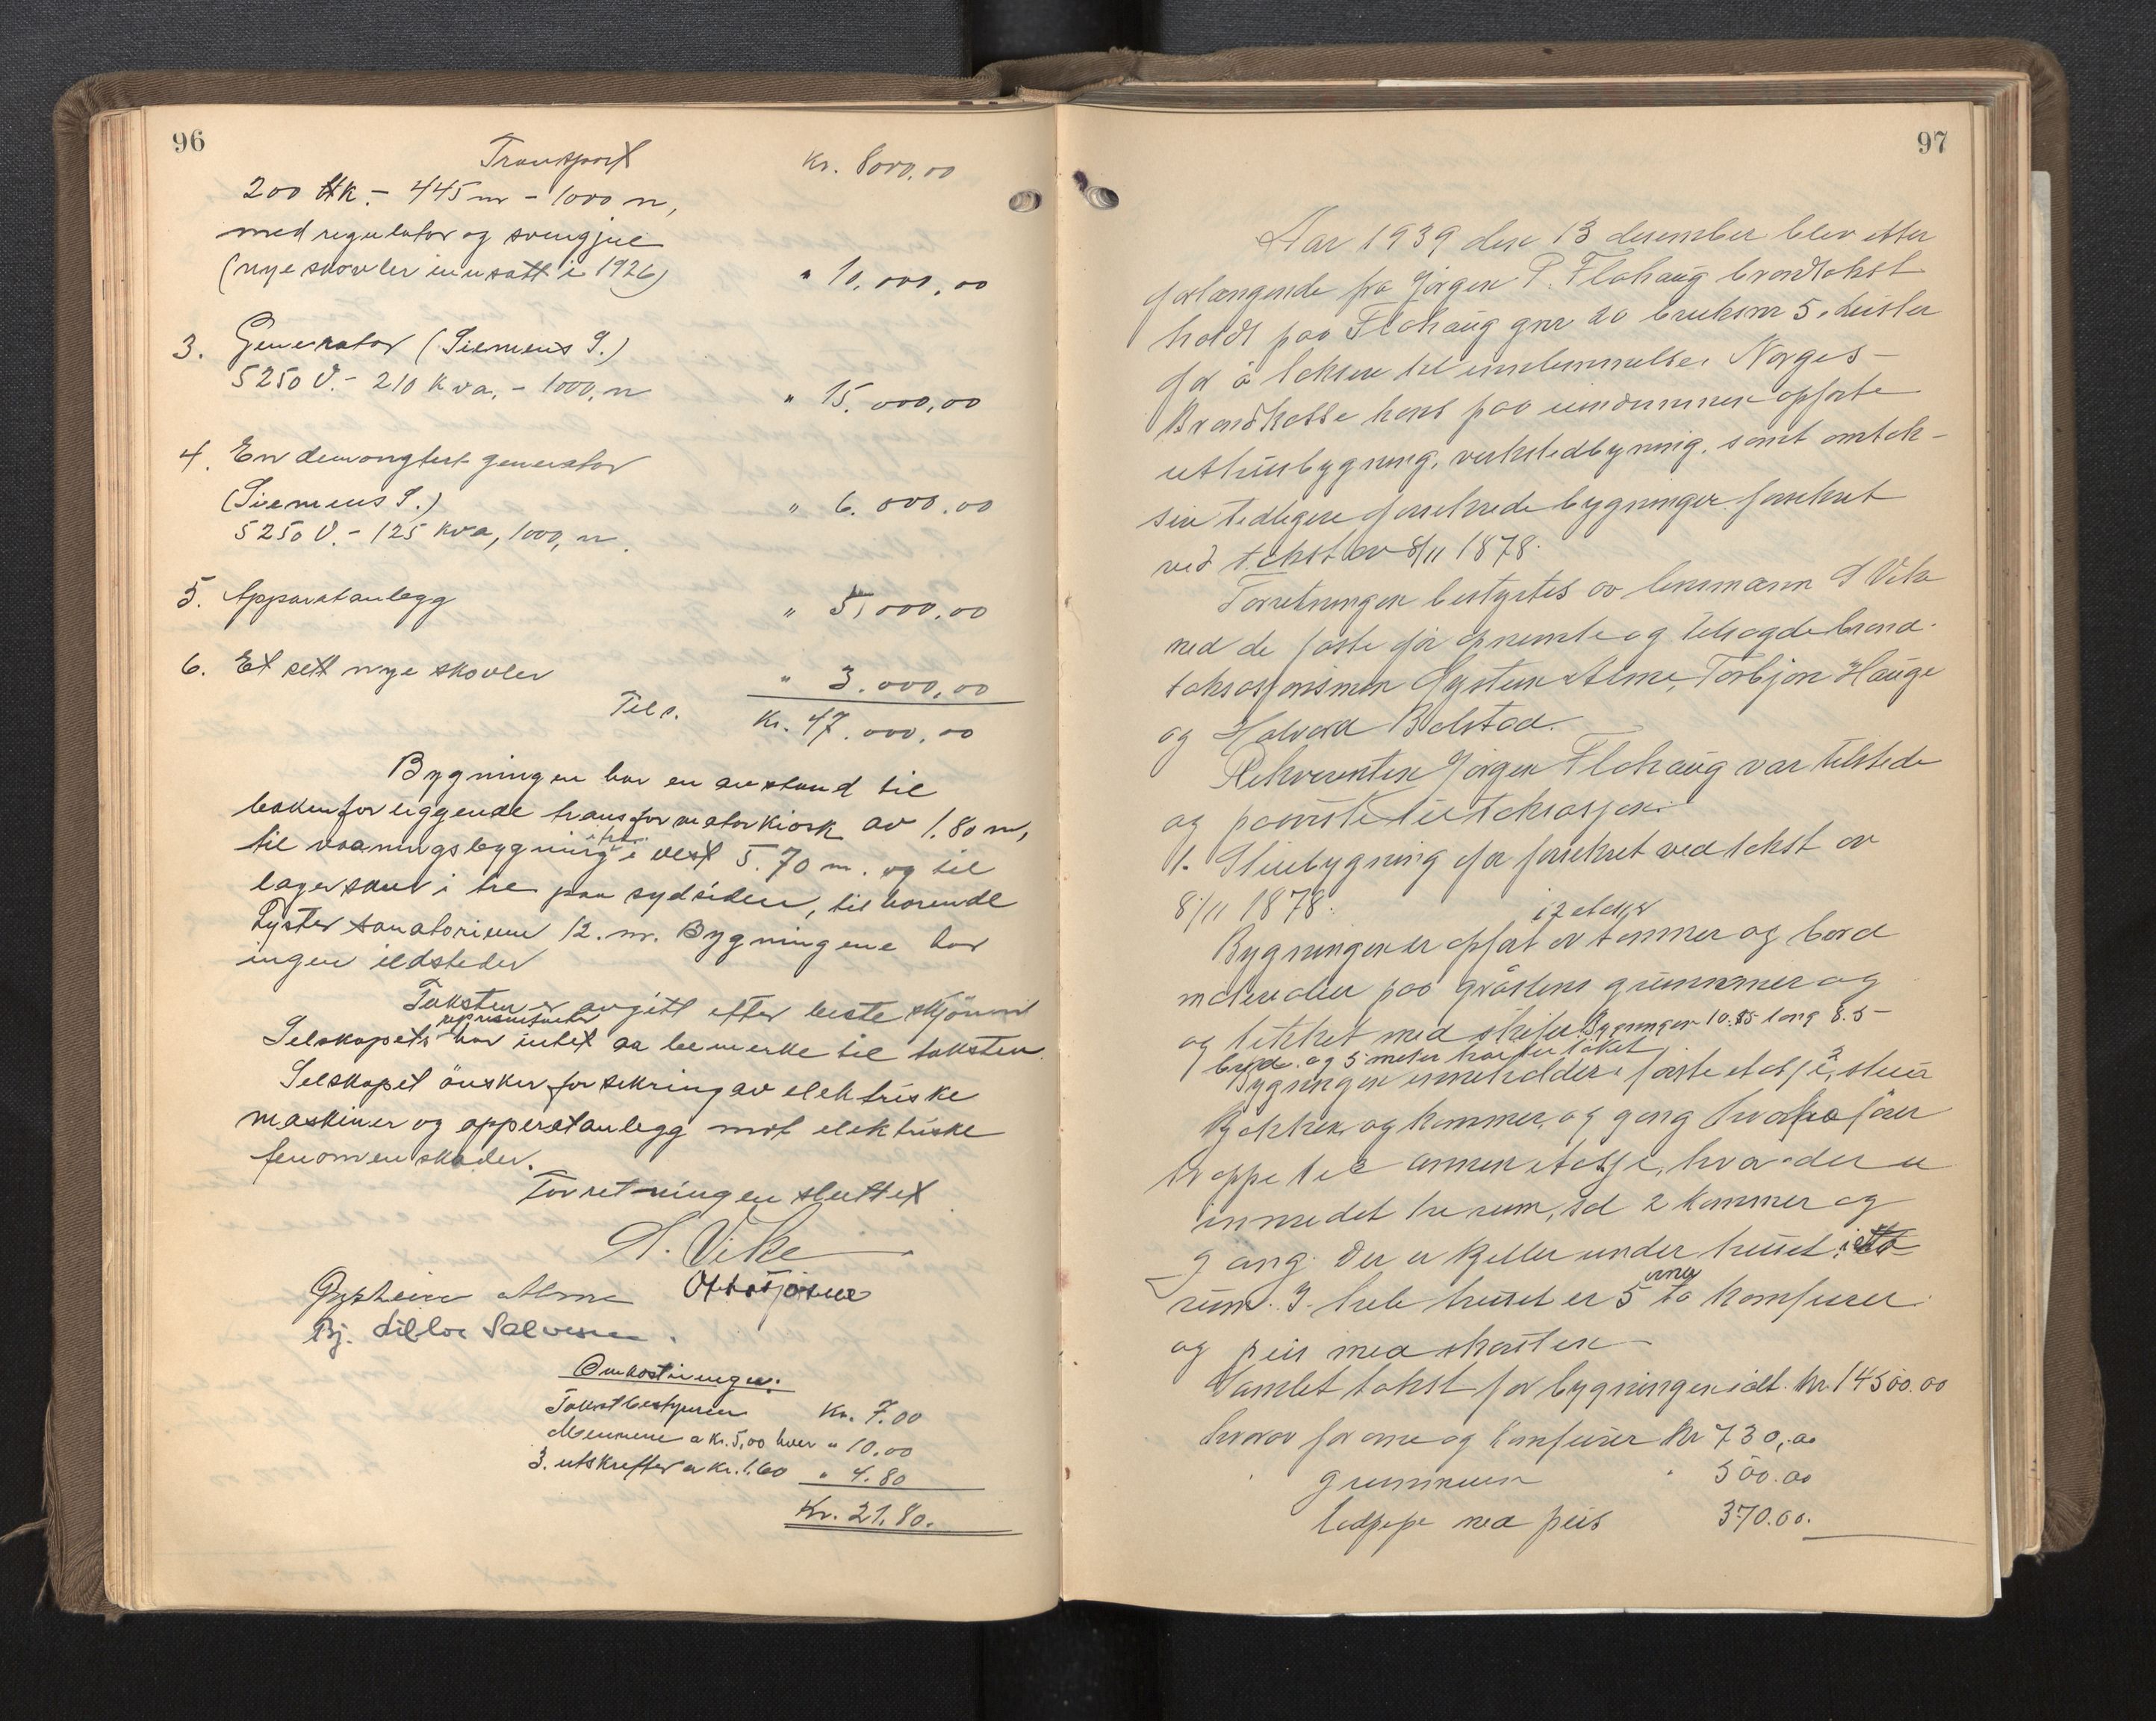 96
Transport Kr. 8000.00
200 Hk. - 445 m - 1000 n,
med regulator og svengjul
(nye skovler innsatt i 1926) " 10.000,00
3. Generator (Siemens S.)
5250 V. - 210 Kva, - 1000, n " 15.000,00
4. En demongtert generator
(Siemens S.) " 6.000.00
5250 V. - 125 Kva, 1000, n.
5. Apparatanlegg " 5,000,00
6. Et sett nye skovler " 3.000,00
Tils. Kr. 47.000,00
Bygningen har en avstand til
bakenfor liggende transformatorkiosk av 1.80 m,
til vaaningsbygning i tre i vest 5.70 m. og til
lagerskur i tre paa sydsiden, tilhorende
Lyster sanatorium 12. m. Bygningene har
ingen ildsteder
Taksten er avgitt efter beste skjönn
Selskapets representanter har intet aa bemerke til taksten.
Selskapet önsker forsikring av elektriske
maskiner og apperatanlegg mot elektriske
fenomenskader.
Forretningen sluttet
S. Vike
Øystein Alme
Bj. Salvesen.
Omkostninger:
Takstbestyreren Kr. 7.00
Mennene a kr. 5,00 hver " 10.00
3. utskrifter a kr. 1.60 " 4.80
Kr. 21.80.
97
Aar 1939 den 13 desember blev efter
forlangende fra Jørgen P. Flahaug brandtakst
holdt paa Flahaug gnr 20 bruksnr 5 i Luster
for å taksere til innlemmelse i Norges -
Brandkasse hans paa eiendommen opførte
uthusbygning, verkstedbygning, samt omtak-
sere tidligere forsikrede bygninger forsikret
ved takst av 8/11 1878.
Forretningen bestyrtes av lensmann S Vike
med de faste før opnevnte og tilsagde brand-
taksasjonsmenn Øystein Alme, Torbjørn Hauge
og Halvard Bolstad.
Rekvirenten Jørgen Flahaug var tilstede
og paaviste til taksasjon:
1. Stuebygning før forsikret ved takst av
8/11 1878.
Bygningen er opført i 2 etasjer av tømmer og bord
materialer paa gråstens grunnmur og
og tekket med skifer. Bygningen 10.85 lang 8.5 -
bred. og 5 meter høi fer taket.
Bygningen inneholder i første etasje 2 stuer
Kjøkken og kammer, og gang hvorfra fører
trappe til annen etasje, hvor der er
innredet tre rum, sd 2 kammer og
gang. Der er kjeller under huset i
rum. I hele huset er 5 ovner to komfurer
og peis med skorsten
Samlet takst for bygningen ialt. kr. 14500.00
hvorav for ovne og komfurer kr 730,00
grunnmuren " 500.00
ledpipe med peis 370.00.